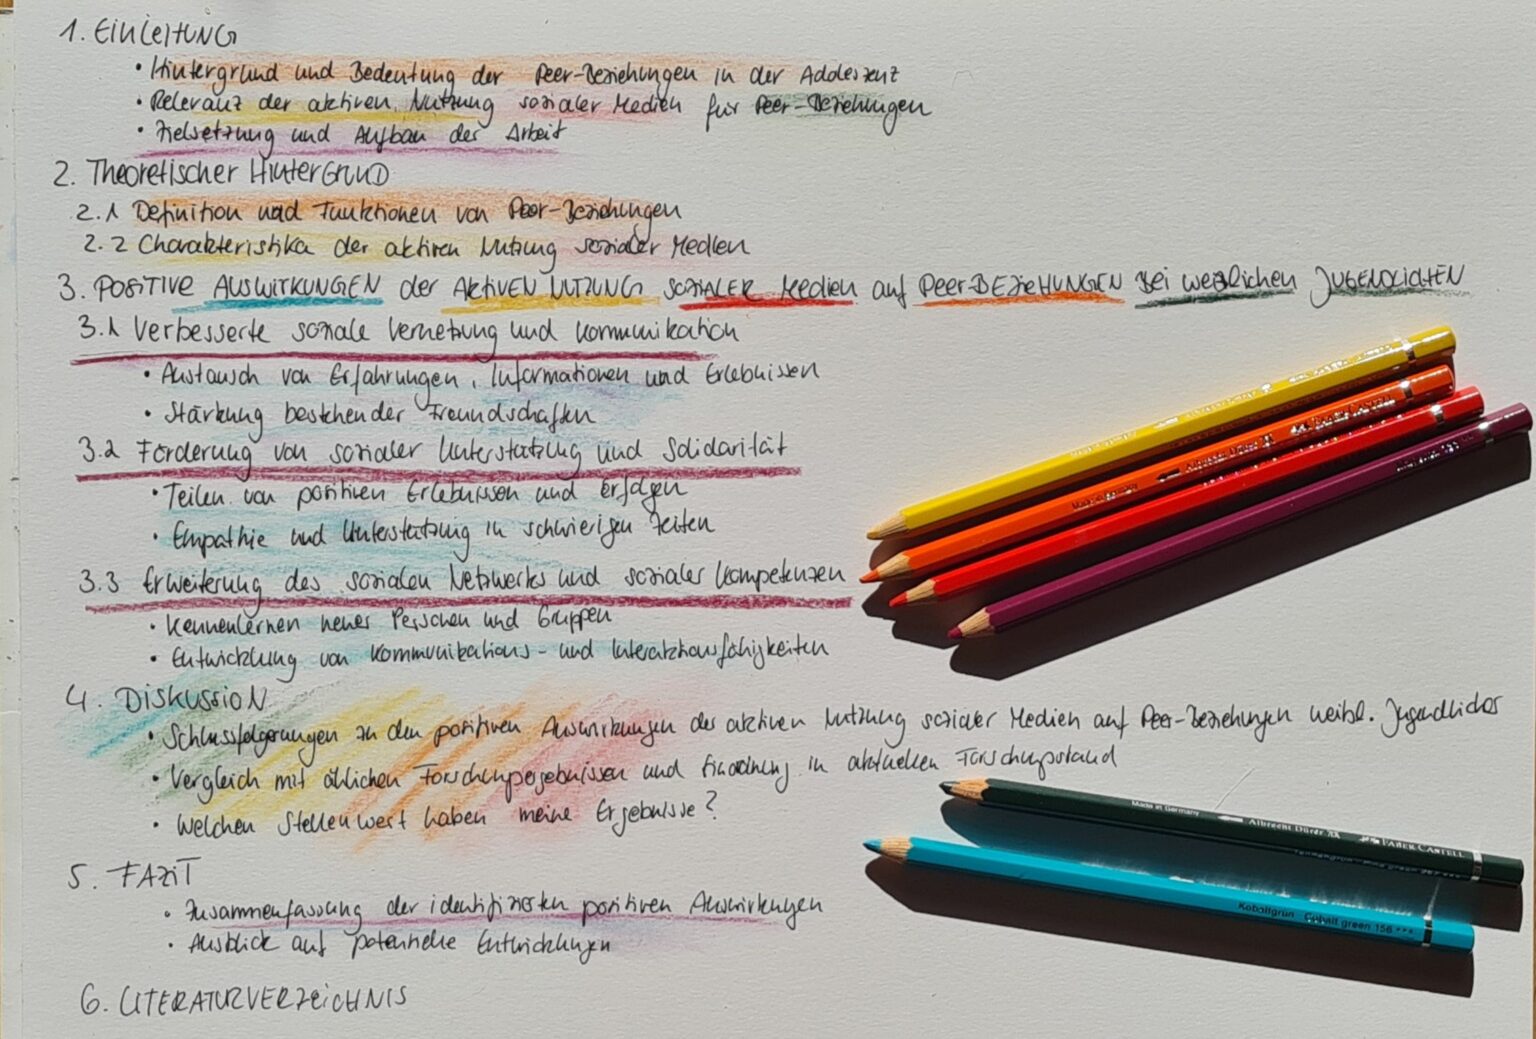 1. EINLEITUNG
• Hintergrund und Bedeutung der Peer-Beziehungen in der Adoleszenz
• Relevanz der aktiven Nutzung sozialer Medien für Peer-Beziehungen
• Zielsetzung und Aufbau der Arbeit
2. Theoretischer HINTERGRUND
2.1 Definition und Funktionen von Peer-Beziehungen
2.2 Charakteristika der aktiven Nutzung sozialer Medien
3. POSITIVE AUSWIRKUNGEN der AKTIVEN NUTZUNG SOZIALER Medien auf Peer-BEZIEHUNGEN Bei weiblichen JUGENDLICHEN
3.1 Verbesserte soziale Vernetzung und Kommunikation
• Austausch von Erfahrungen, Informationen und Erlebnissen
• Stärkung bestehender Freundschaften
3.2 Förderung von sozialer Unterstützung und Solidarität
• Teilen von positiven Erlebnissen und Erfolgen
• Empathie und Unterstützung in schwierigen Zeiten
3.3 Erweiterung des sozialen Netzwerks und sozialer Kompetenzen
• Kennenlernen neuer Personen und Gruppen
• Entwicklung von Kommunikations- und Interaktionsfähigkeiten
4. DISKUSSION
• Schlussfolgerungen zu den positiven Auswirkungen der aktiven Nutzung sozialer Medien auf Peer-Beziehungen weibl. Jugendlicher
• Vergleich mit ähnlichen Forschungsergebnissen und Einordnung in aktuellen Forschungsstand
• Welchen Stellenwert haben meine Ergebnisse?
5. FAZIT
• Zusammenfassung der identifizierten positiven Auswirkungen
• Ausblick auf potentielle Entwicklungen
6. LITERATURVERZEICHNIS
Made in Germany Albrecht Dürer FABER-CASTELL
Kobaltgrün Cobalt green 156 ***